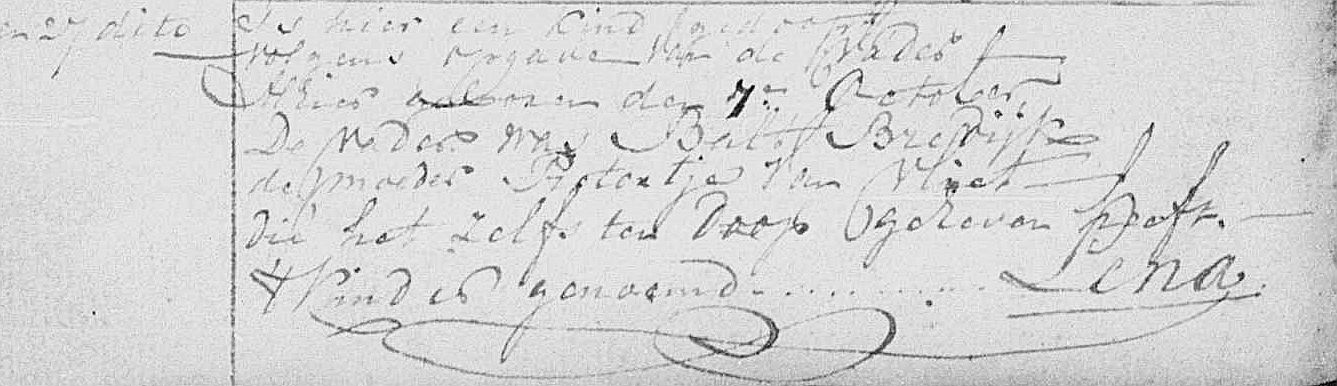 en 27 dito Is hier een kind gedoopt
volgens opgave van de Vader
Alhier geboren den 7en October,
De vader was Balt Bredijk
de moeder Pietertje van Vliet
die het zelfs ten doop geheven heeft.
't kind is genoemd ........... Lena